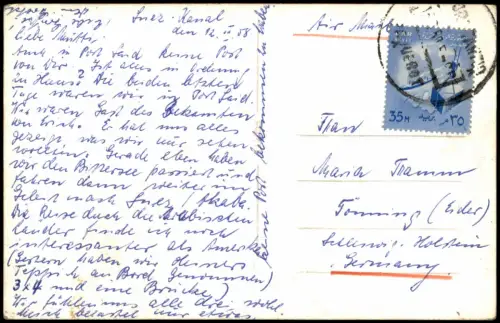 Suez-Kanal
den 12. II 58
Liebe Mutti,
Auch in Port Said keine Post
von Dir. Ist alles in Ordnung
zu Hause? Die beiden letzten
Tage waren wir in Port Said.
Wir waren Gast des Bekannten
von Erich. Er hat uns alles
gezeigt was wir nur sehen
wollten. Gerade eben haben
wir den Bittersee passiert und
fahren dann weiter im
nach Suez, Akaba.
Die Reise durch die arabischen
Länder finde ich noch
interessanter als Amerika
(Gestern haben wir
Teppich an Bord genommen)
3x4 und eine Brücke)
Wir fühlen uns alle drei wohl.
Mich belastet nur etwas,
keine Post bekommen zu haben
Air Mail
35 M
٣٥
Frau
Maria Tramm
Tönning (Eider)
Schleswig-Holstein
Germany